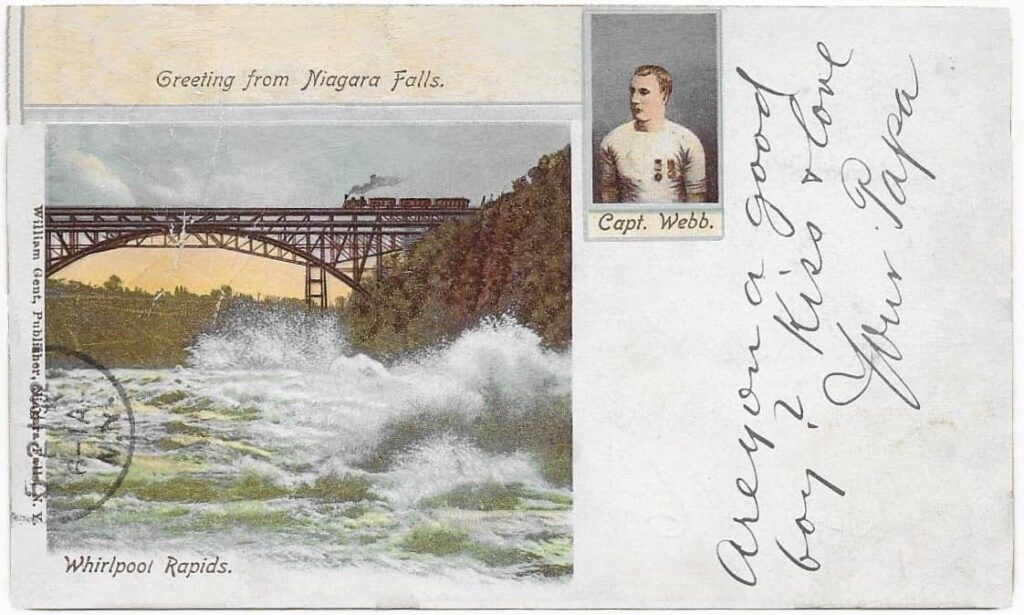 Greeting from Niagara Falls.
Capt. Webb.
William Gent, Publisher, Niagara Falls, N. Y.
Whirlpool Rapids.
Are you a good
boy? Kiss & love
Your Papa
N.Y.